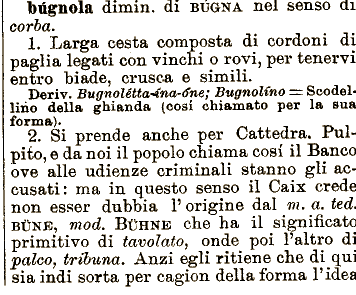 búgnola dimin. di BÚGNA nel senso di
corba.
1. Larga cesta composta di cordoni di
paglia legati con vinchi o rovi, per tenervi
entro biade, crusca e simili.
Deriv. Bugnolétta-ína-óne; Bugnolíno = Scodel-
lino della ghianda (cosí chiamato per la sua
forma).
2. Si prende anche per Cattedra. Pul-
pito, e da noi il popolo chiama cosí il Banco
ove alle udienze criminali stanno gli ac-
cusati: ma in questo senso il Caix crede
non esser dubbia l'origine dal m. a. ted.
BÜNE, mod. BÜHNE che ha il significato
primitivo di tavolato, onde poi l'altro di
palco, tribuna. Anzi egli ritiene che di qui
sia indi sorta per cagion della forma l'idea